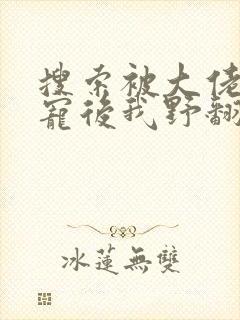 搜索被大佬
寵後我野翻
冰蓮無雙